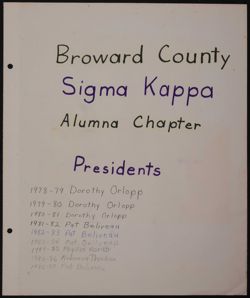 Broward County
Sigma Kappa
Alumna Chapter
Presidents
1978-79 Dorothy Orlopp
1979-80 Dorothy Orlopp
1980-81 Dorothy Orlopp
1981-82 Pat Beliveau
1982-83 Pat Beliveau
Pat Beliveau